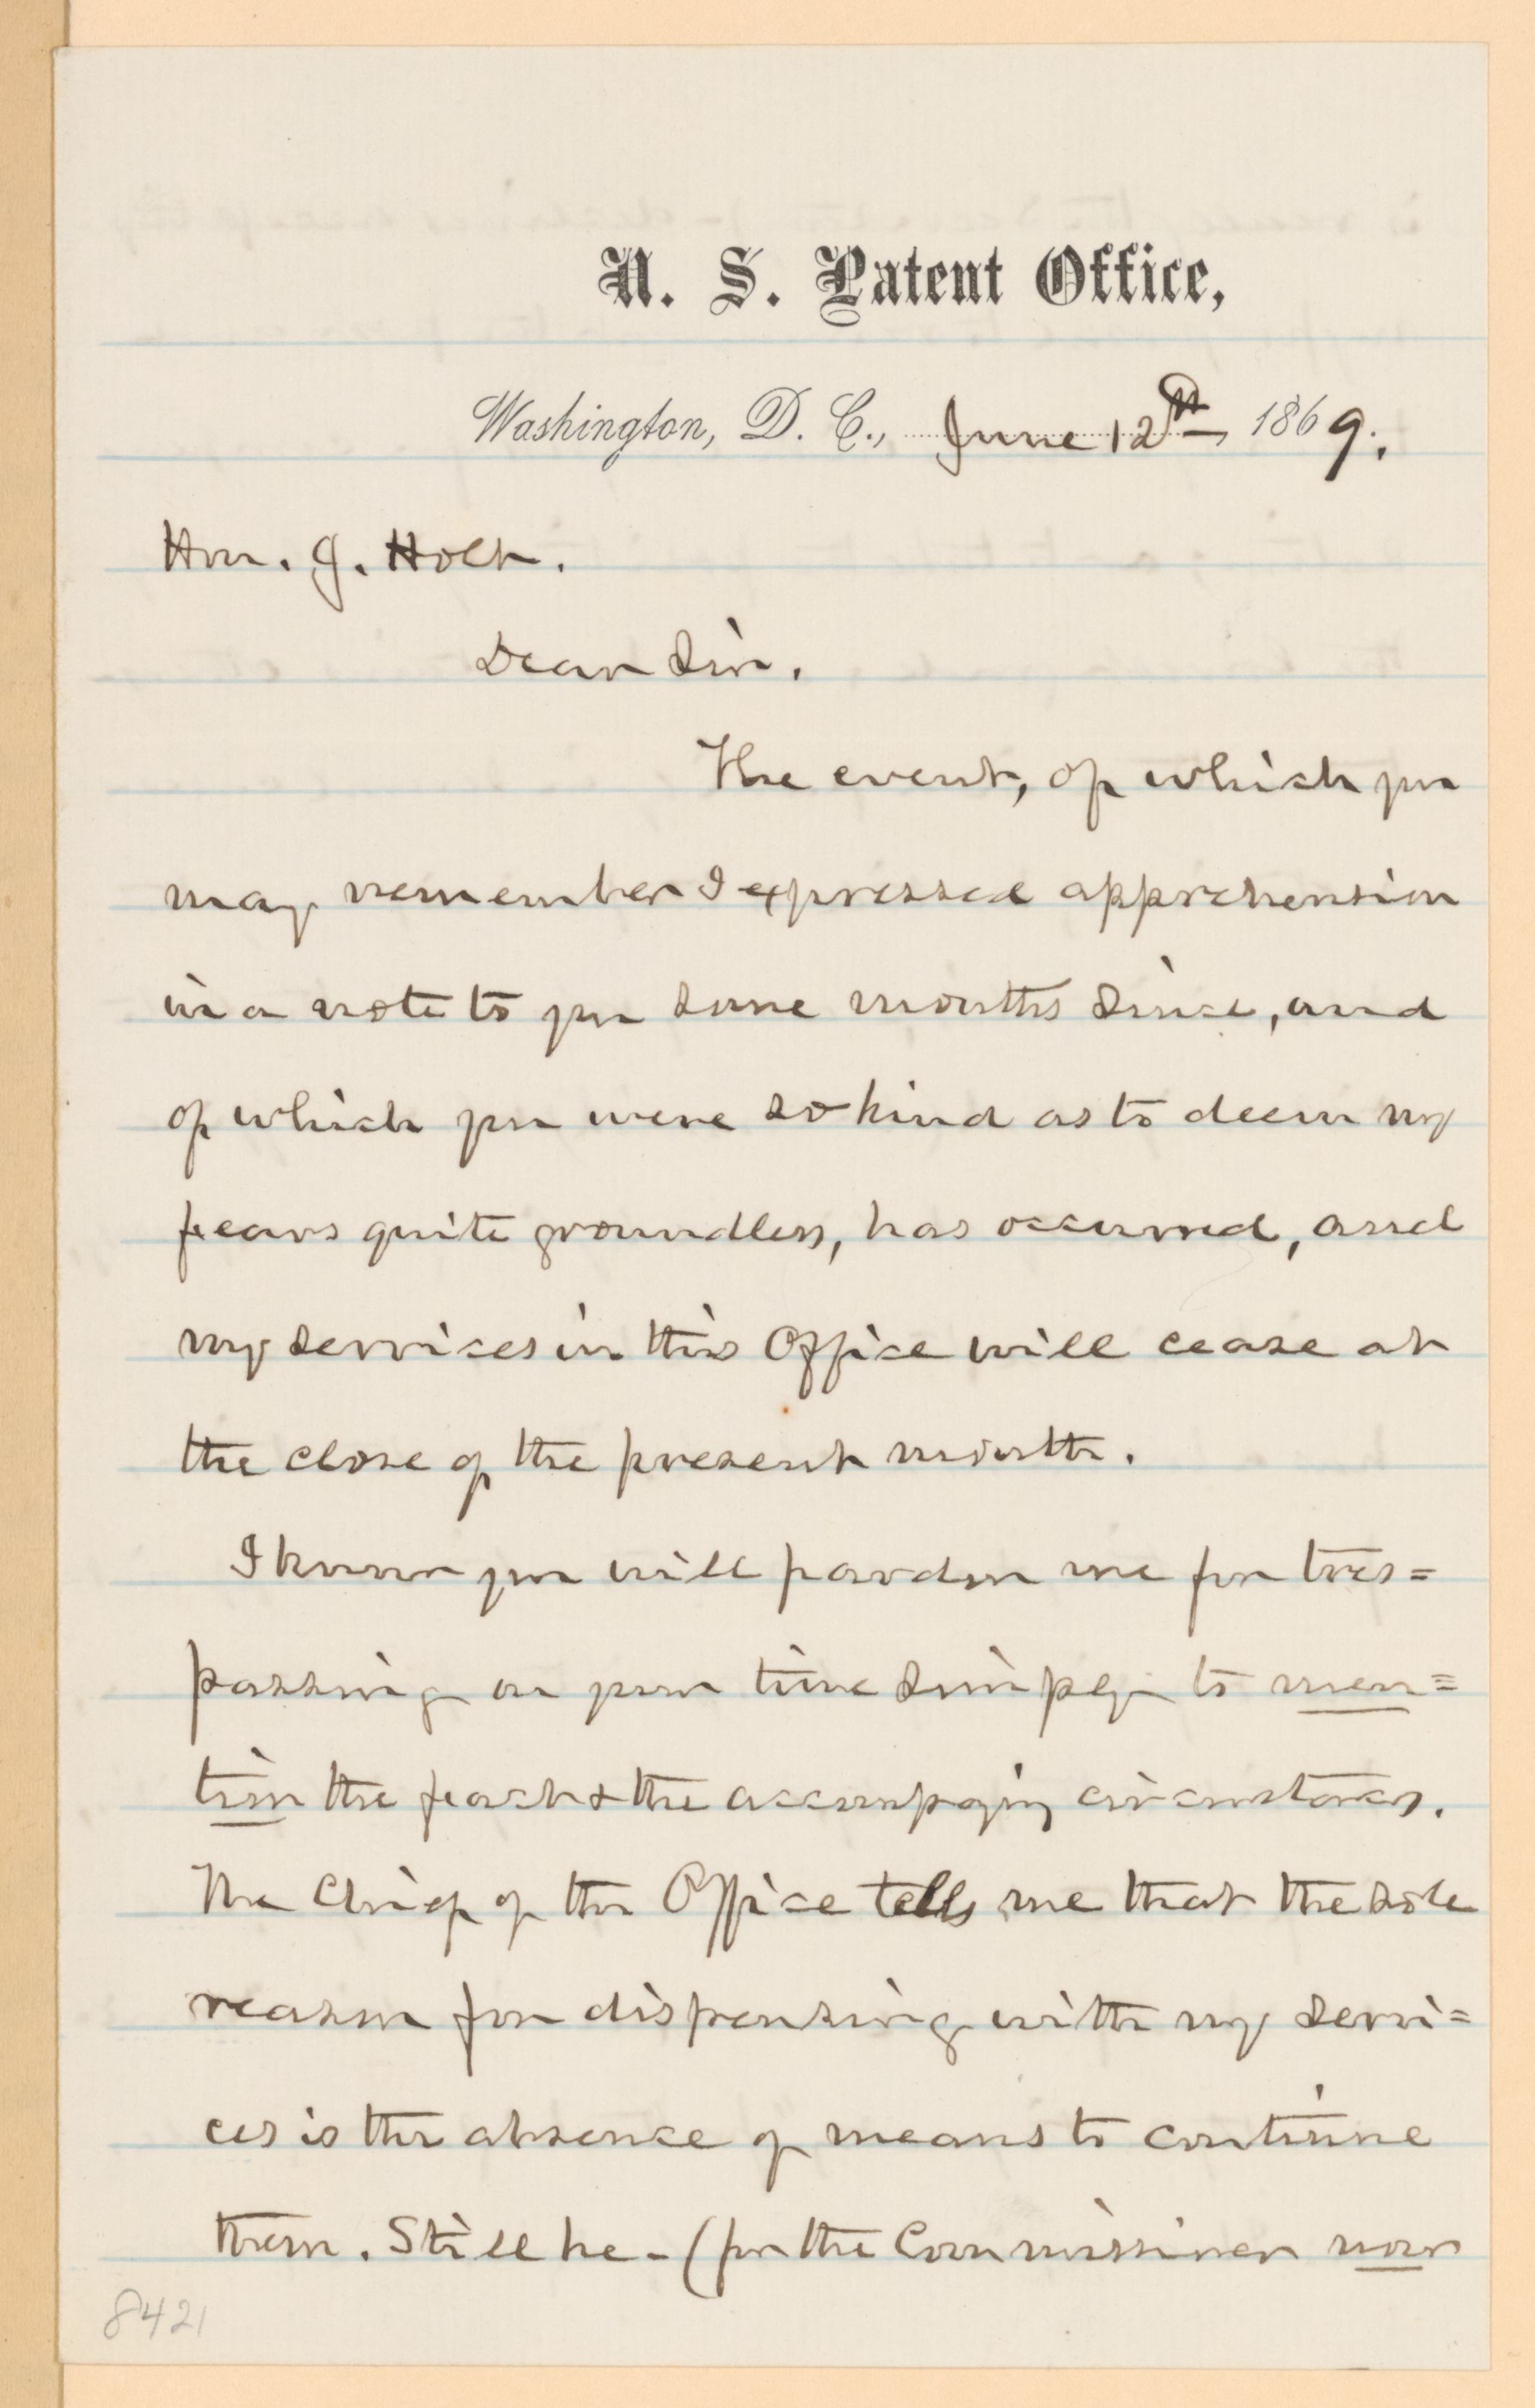 U. S. Patent Office,
Washington, D. C., June 12th, 1869.
Hon. J. Holt.
Dear Sir.
The event, of which you
may remember I expressed apprehension
in a note to you some months since, and
of which you were so kind as to deem my
fears quite groundless, has occurred, and
my services in this Office will cease at
the close of the present month.
I know you will pardon me for tres=
passing on your time simply to men=
tion the fact & the accompanying circumstances.
The Chief of the Office tells me that the sole
reason for dispensing with my servi=
ces is the absence of means to continue
them. Still he - (for the Commissioner now
8421